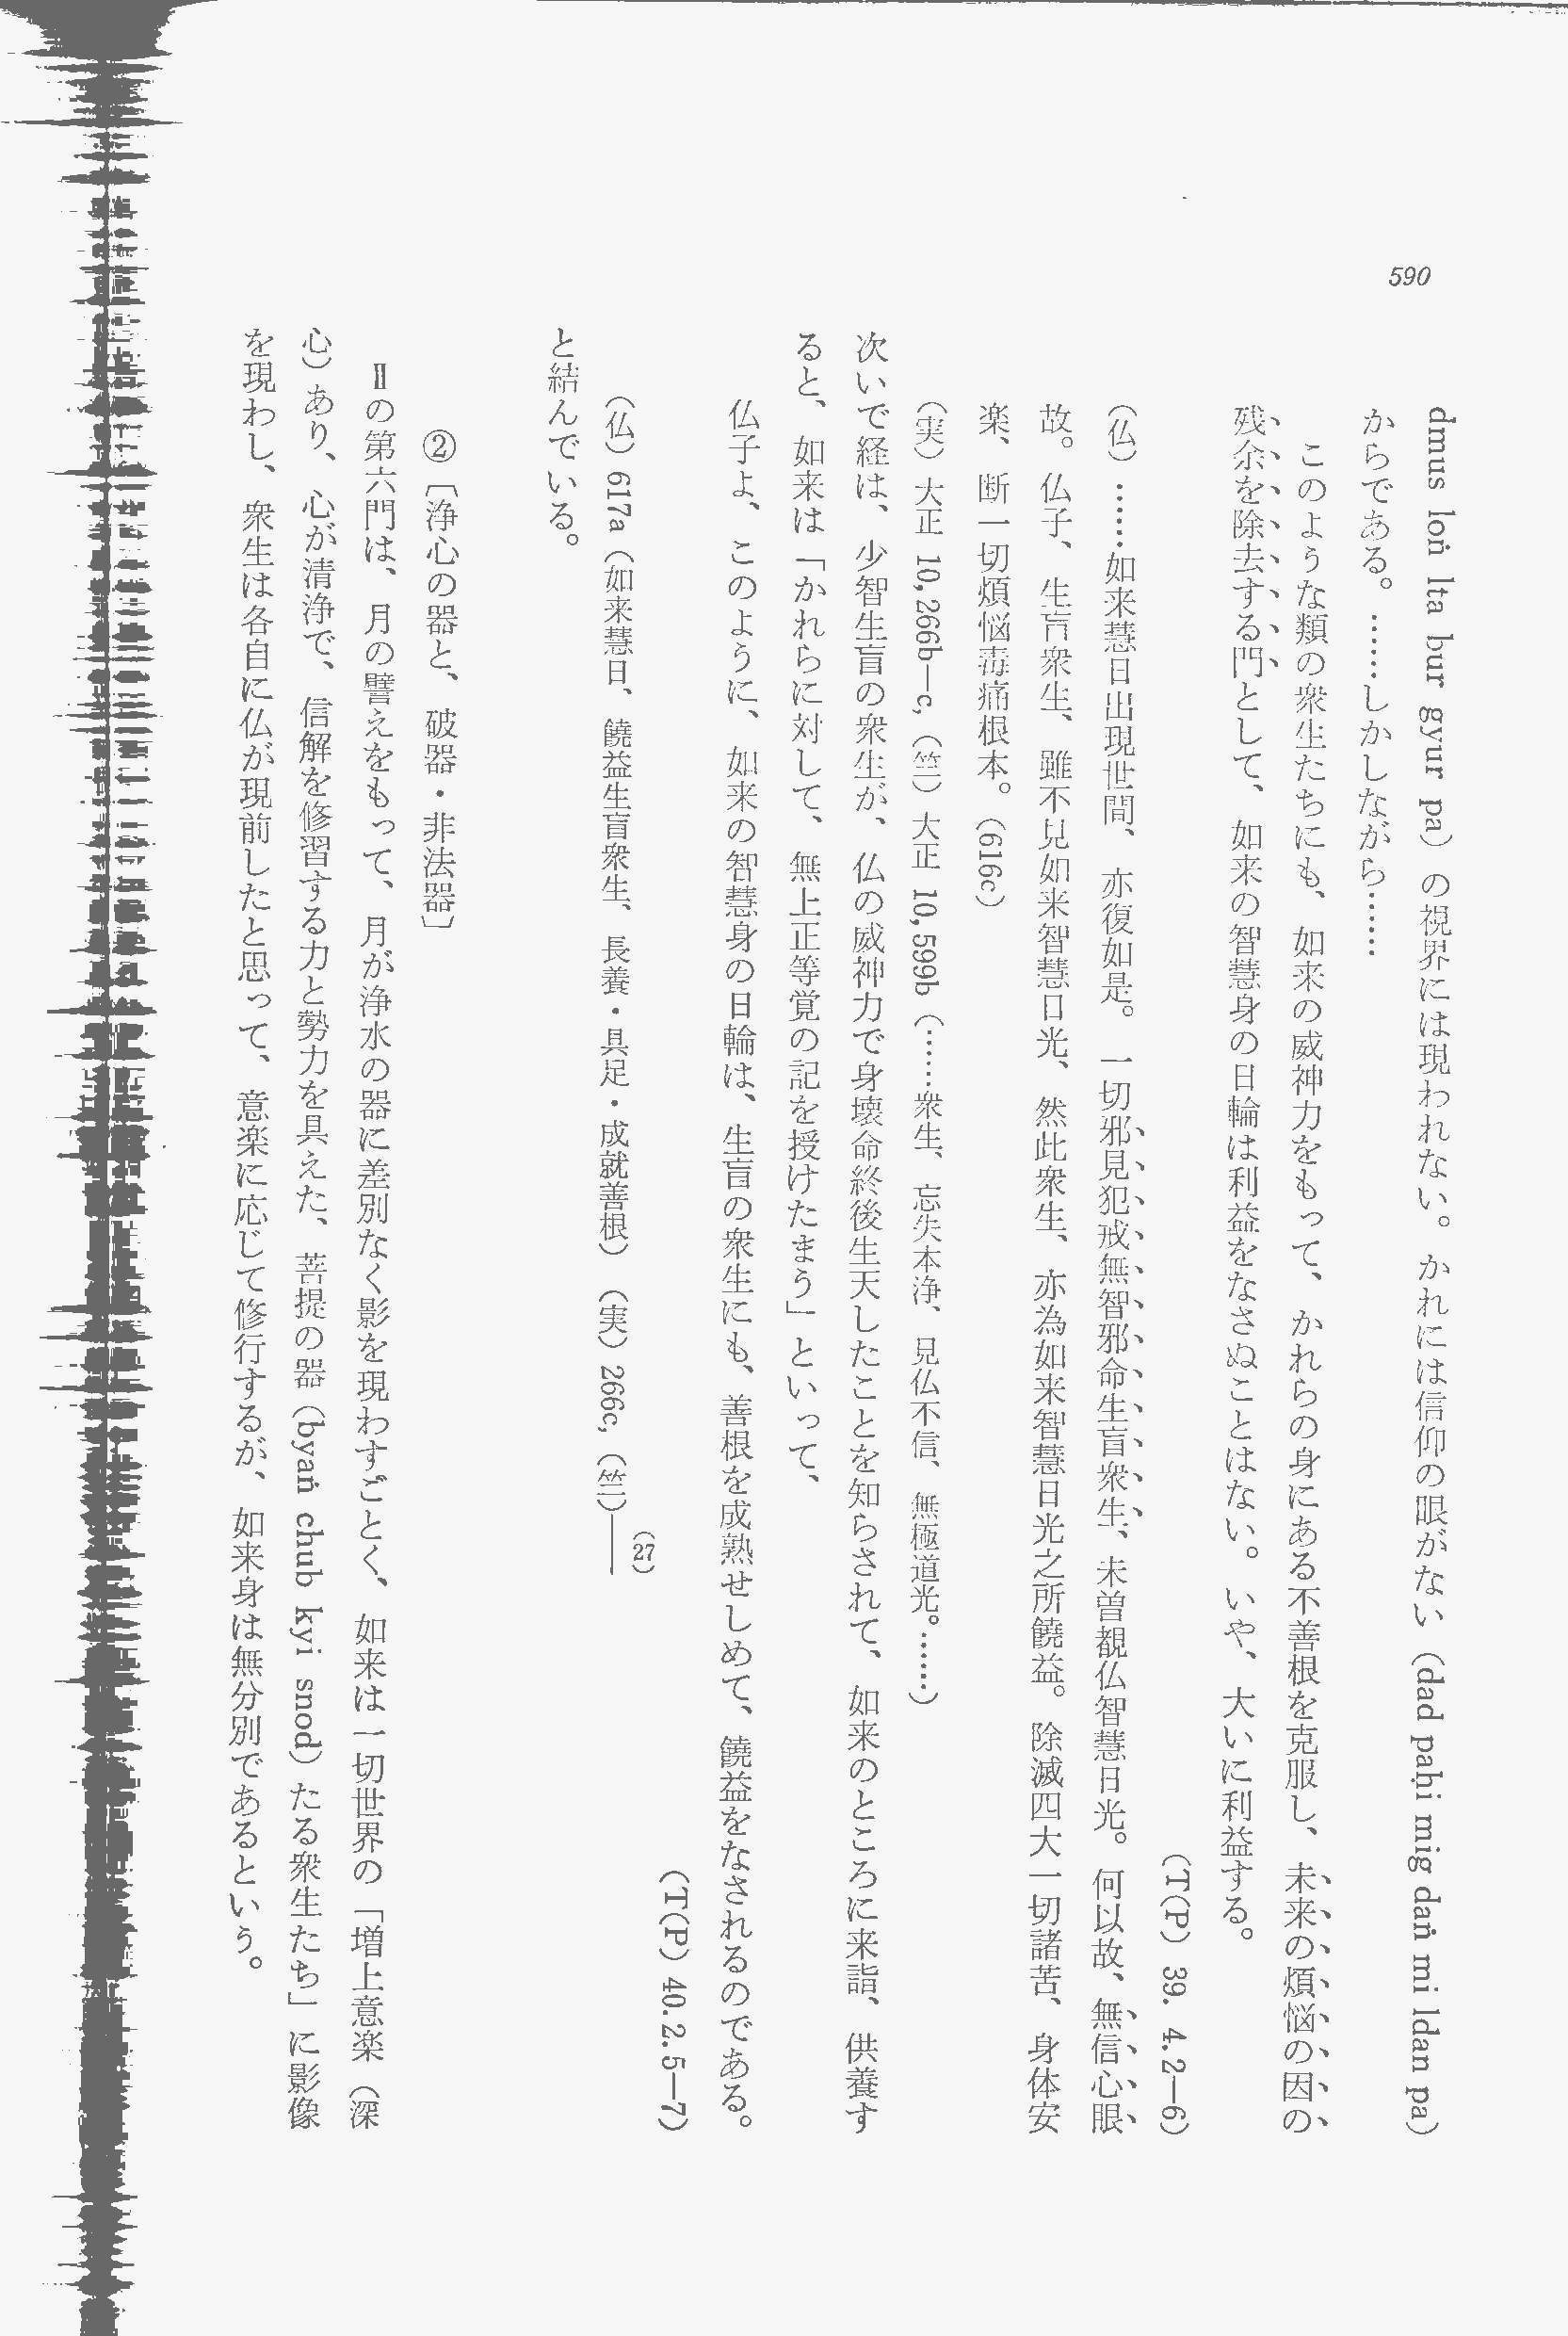 590
dmus loṅ lta bur gyur pa）の視界には現われない。かれには信仰の眼がない（dad paḥi mig daṅ mi ldan pa）
からである。……しかしながら……
このような類の衆生たちにも、如来の威神力をもって、かれらの身にある不善根を克服し、未来の煩悩の因の
残余を除去する門として、如来の智慧身の日輪は利益をなさぬことはない。いや、大いに利益する。
（T(P) 39. 4.2—6）
（仏）……如来慧日出現世間、亦復如是。一切邪見犯戒無智邪命生盲衆生、未曽覩仏智慧日光。何以故、無信心眼
故。仏子、生盲衆生、雖不見如来智慧日光、然此衆生、亦為如来智慧日光之所饒益。除滅四大一切諸苦、身体安
楽、断一切煩悩毒痛根本。（616c）
（実）大正 10, 266b—c,（竺）大正 10, 599b（……衆生、忘失本浄、見仏不信、無極道光。……）
次いで経は、少智生盲の衆生が、仏の威神力で身壊命終後生天したことを知らされて、如来のところに来詣、供養す
ると、如来は「かれらに対して、無上正等覚の記を授けたまう」といって、
仏子よ、このように、如来の智慧身の日輪は、生盲の衆生にも、善根を成熟せしめて、饒益をなされるのである。
（T(P) 40.2.5—7）
（仏）617a（如来慧日、饒益生盲衆生、長養・具足・成就善根）（実）266c,（竺）——（27）
と結んでいる。
②〔浄心の器と、破器・非法器〕
Ⅱの第六門は、月の譬えをもって、月が浄水の器に差別なく影を現わすごとく、如来は一切世界の「増上意楽（深
心）あり、心が清浄で、信解を修習する力と勢力を具えた、菩提の器（byaṅ chub kyi snod）たる衆生たち」に影像
を現わし、衆生は各自に仏が現前したと思って、意楽に応じて修行するが、如来身は無分別であるという。